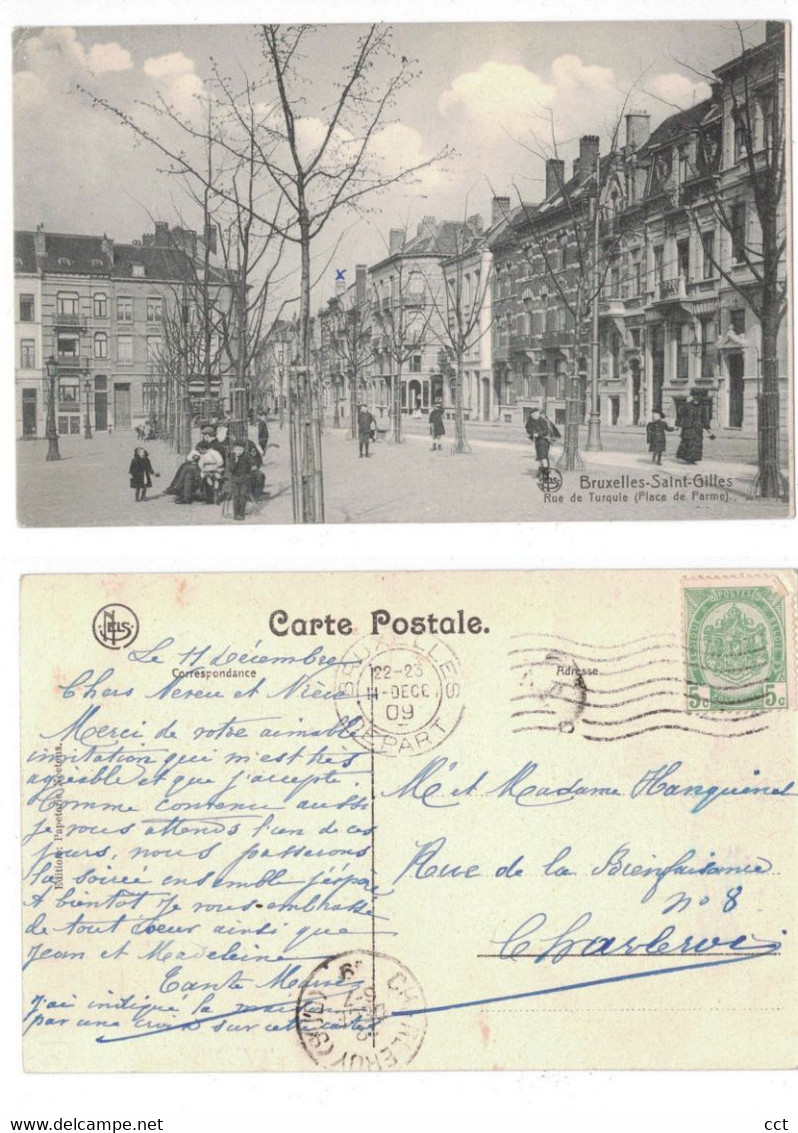 x
NELS
Bruxelles-Saint-Gilles
Rue de Turquie (Place de Parme).
NELS
Carte Postale.
Correspondance
Adresse
Le 11 Décembre
Chers Neveu et Nièce
Merci de votre aimable
invitation qui m'est très
agréable et que j'accepte.
Comme convenu aussi
je vous attends l'un de ces
jours, nous passerons
la soirée ensemble j'espère
A bientôt je vous embrasse
de tout coeur ainsi que
Jean et Madeleine
Tante
J'ai indiqué la maison
par une croix sur cette carte
Edition: Papeterie
BRUXELLES
22-23
11-DECE
09
DEPART
POSTES
5c 5c
Mr et Madame Hanquinet
Rue de la Bienfaisance
no 8
Charleroi
CHARLEROY (SUD)
Delcampe.net
cct